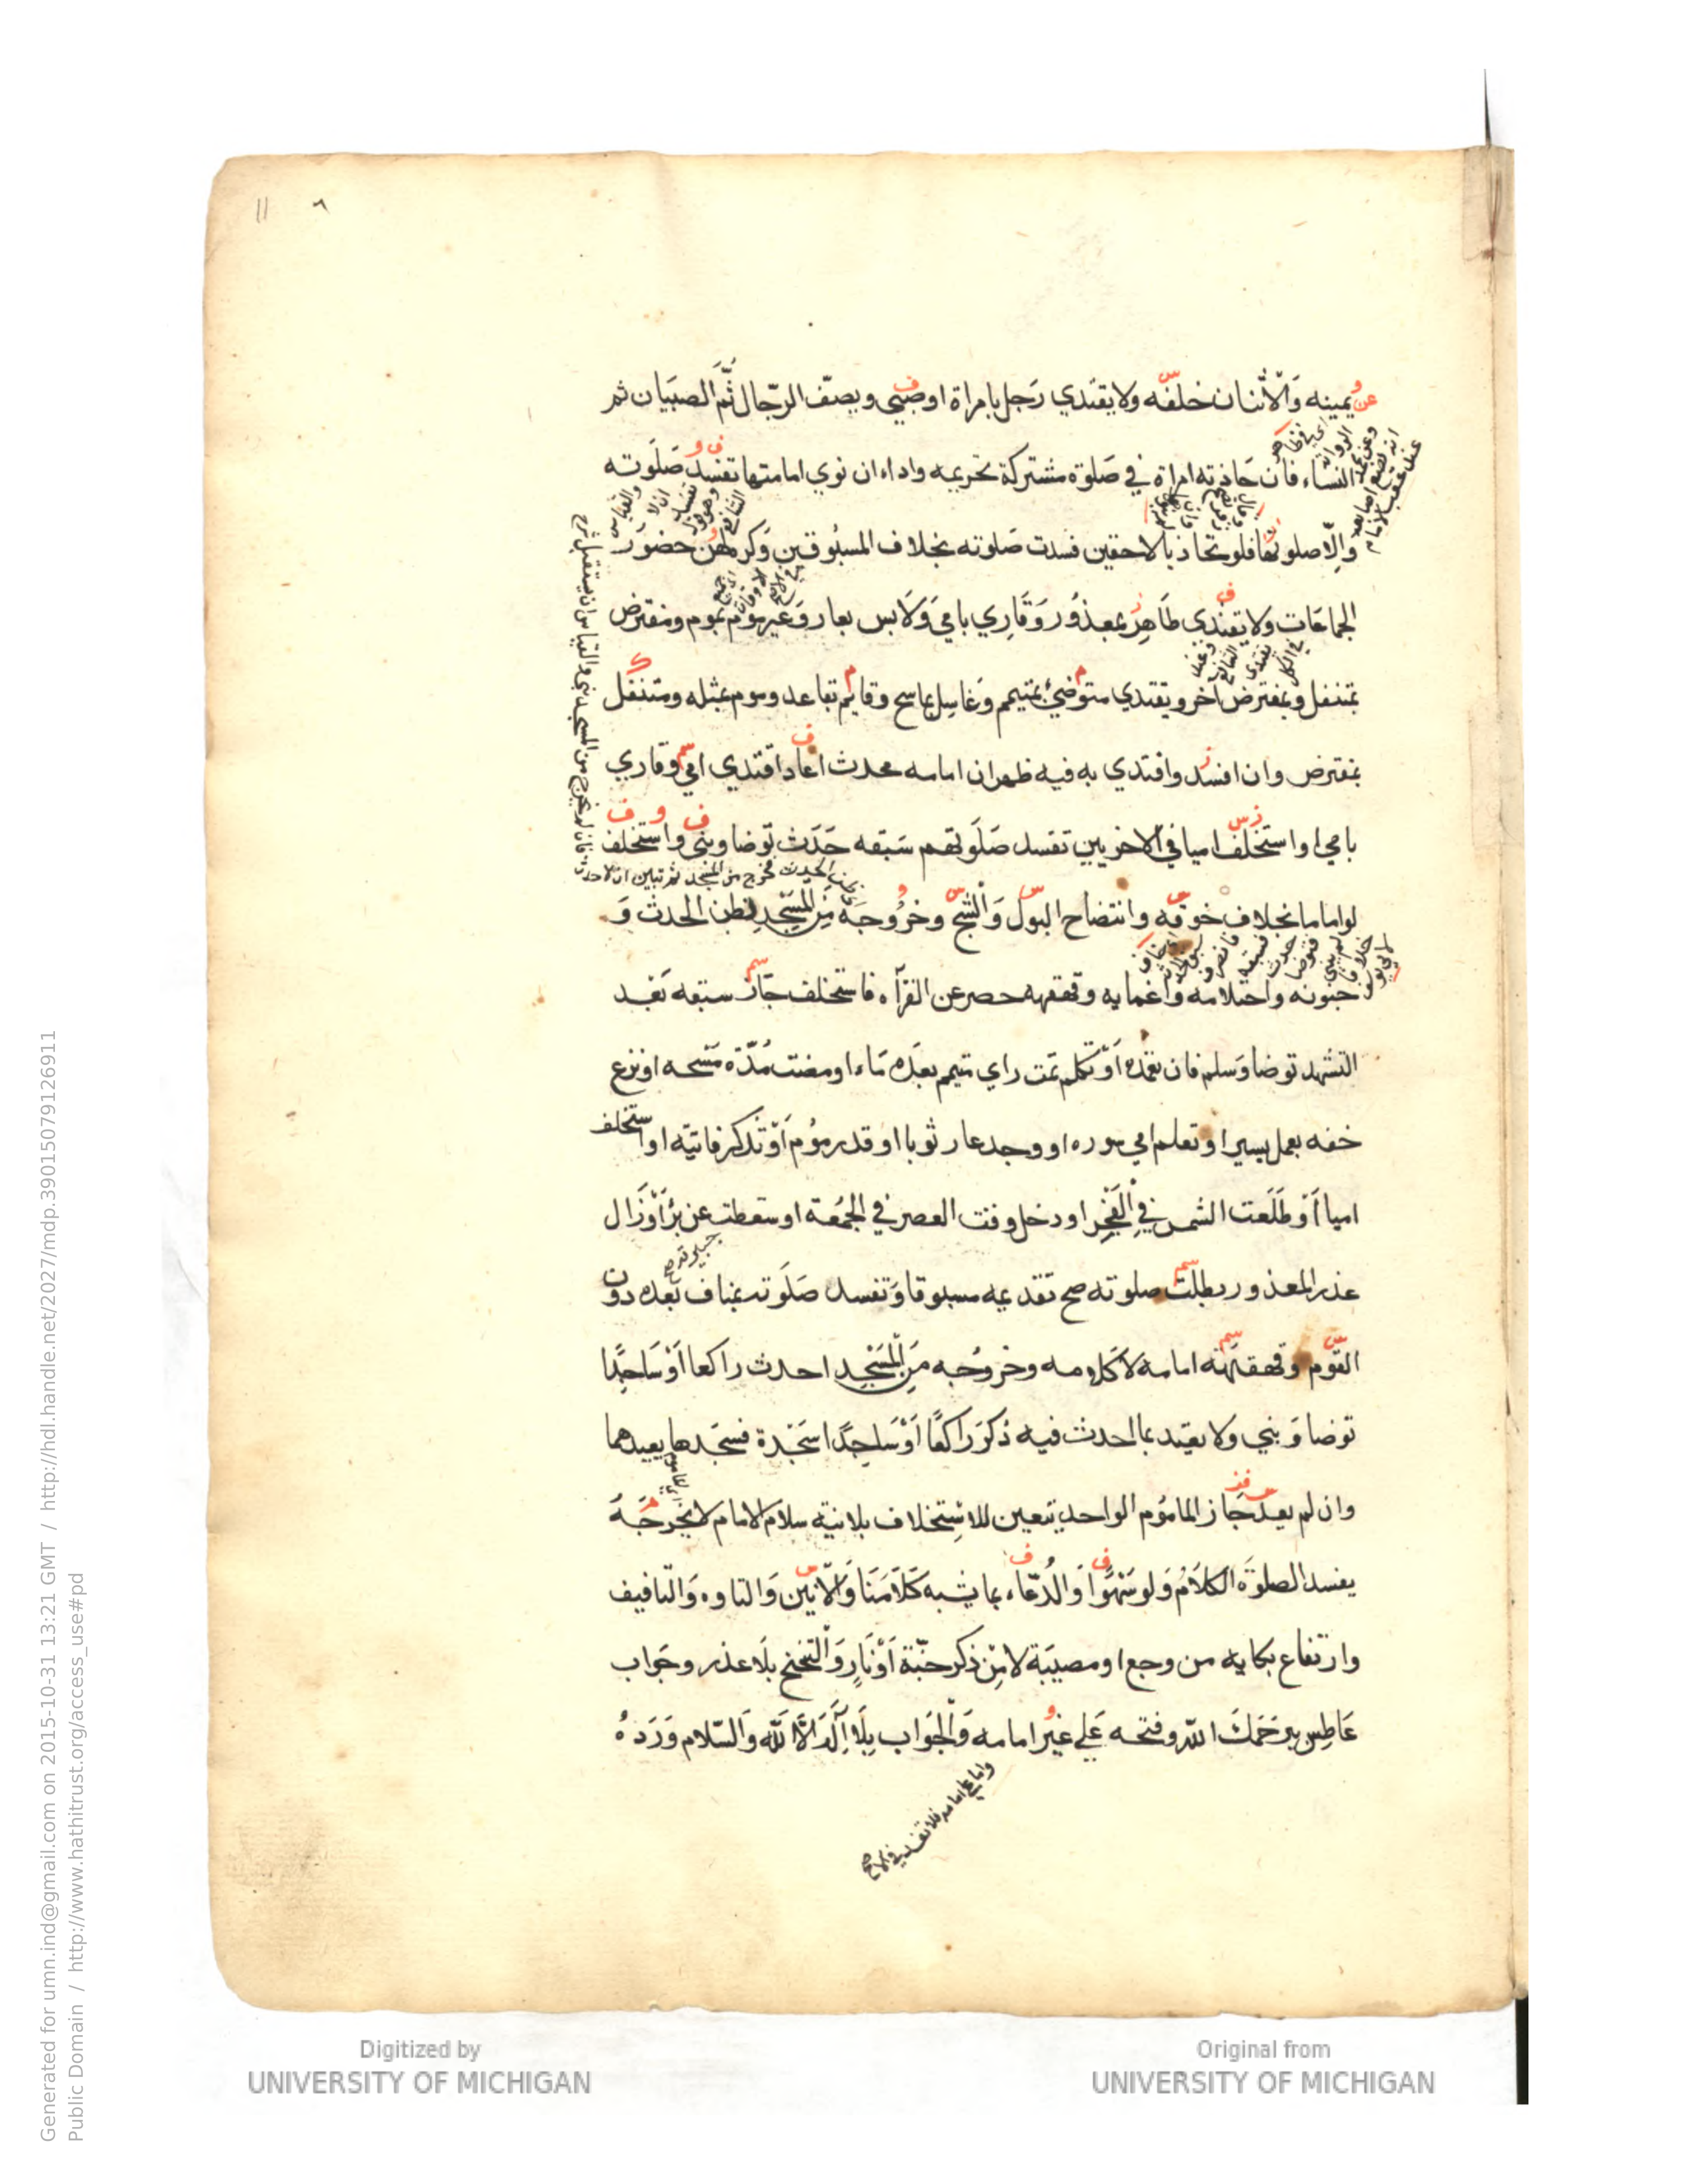 11
٦
عن يمينه وَالْاثنان خلفه ولا يقتدي رَجل بامراة او صبي ويصف الرّجال ثم الصبيان ثم
النساء فان حَاذته امراة في صَلوة مشتركة تحريمه واداء ان نوي امامتها تفسد صَلَوته
وَالا صلوتها فلو تحاذيا لاحقين فسدت صَلوته بخلاف المسبُوقين وَكره لهن حضور
الجماعَات ولا يقتدى طَاهِر بمعذوُر وَقاري بامي وَلَابس بعار وَغير موم بموم ومفترض
بمتنفل وبمفترض آخر ويقتدي متوضئ بمتيمم وَغاسِل بماسح وقايم بقاعد وموم بمثله ومتنفل
بمفترض وان افسد واقتدي به فيه ظهر ان امامه محدث اعاد اقتدي امي وقاري
بامي او استخلف اميا في الاخريين تفسد صَلَوتهم سَبقه حَدَث توضا وبنى واستخلف
لو اماما بخلاف خوفه وانتضاح البوْل وَالشج وخرُوجَه مِنَ المَسْجدِ لظن الحدث وَ
جنونه واحتلامه واغمايه وقهقهه حصر عن القرآه فاستخلف جَاز سبقه بَعْد
التشهد توضا وَسلم فان تعمده اَوْ تكلم تمت راي متيمم بعدَه مَاء او مضت مُدّة مَسْحه او نزع
خفه بعمل يسير او تعلم امي سوره او وجد عار ثوبا او قدر مؤم اَوْ تذكر فائتة او استخلف
اميا اَوْ طَلَعت الشمس في الفَجْر او دخل وقت العصر في الجمُعة او سقطت عن برْء اَوْ زَال
عذر المعذور بطلت صلوته صح تقديمه مسبوقا وَتفسد صَلَوته بمناف بَعده دون
القوم وقهقهة امامه لا كلامه وخروُجه مِنَ المَسْجِد احدث راكعا اَوْ سَاجِدًا
توضا وَبني وَلا يعتد بما احدث فيه ذكَرَ راكعًا اَوْ سَاجِدًا سَجْدة فسجَدها يعيدهما
وان لم يعد جَاز الماموُم الواحد يتعين للاسْتِخلاف بلا نية سلام الامام لا يخرجَهُ
يفسد الصلوَة الكلامُ وَلو سَهْوا وَالدُعاء بما يشبه كَلَامَنَا وَالانين وَالتاوه وَالتافيف
وارتفاع بكايه من وجع او مصيَبة لا مِنْ ذكر جنّة اَوْ نَارٍ وَالتنحنح بلَا عذر وجَواب
عَاطِس بيَرْحَمَكَ الله وفتحه عَلي غيْر امامه وَالجَواب بِلَا اِلَهَ اِلَّا الله وَالسّلام وَرَده
واما علي امامه فلا تفسد في الاصح
Digitized by
UNIVERSITY OF MICHIGAN
Original from
UNIVERSITY OF MICHIGAN
Generated for umn.ind@gmail.com on 2015-10-31 13:21 GMT / http://hdl.handle.net/2027/mdp.39015079126911
Public Domain / http://www.hathitrust.org/access_use#pd